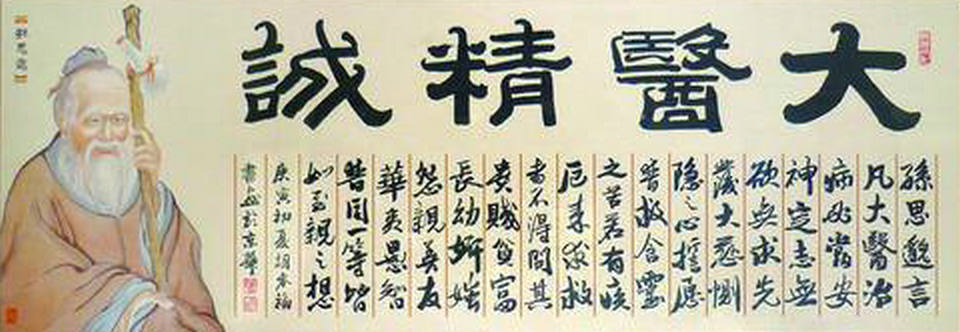 大醫精誠
孫思邈言
凡大醫治
病必當安
神定志無
欲無求先
發大慈惻
隐之心誓愿
普救含靈
之苦若有疾
厄来求救
者不得問其
貴賤貧富
長幼妍媸
怨親善友
華夷愚智
普同一等皆
如至親之想
庚寅初夏胡福
書於京華
孫思邈